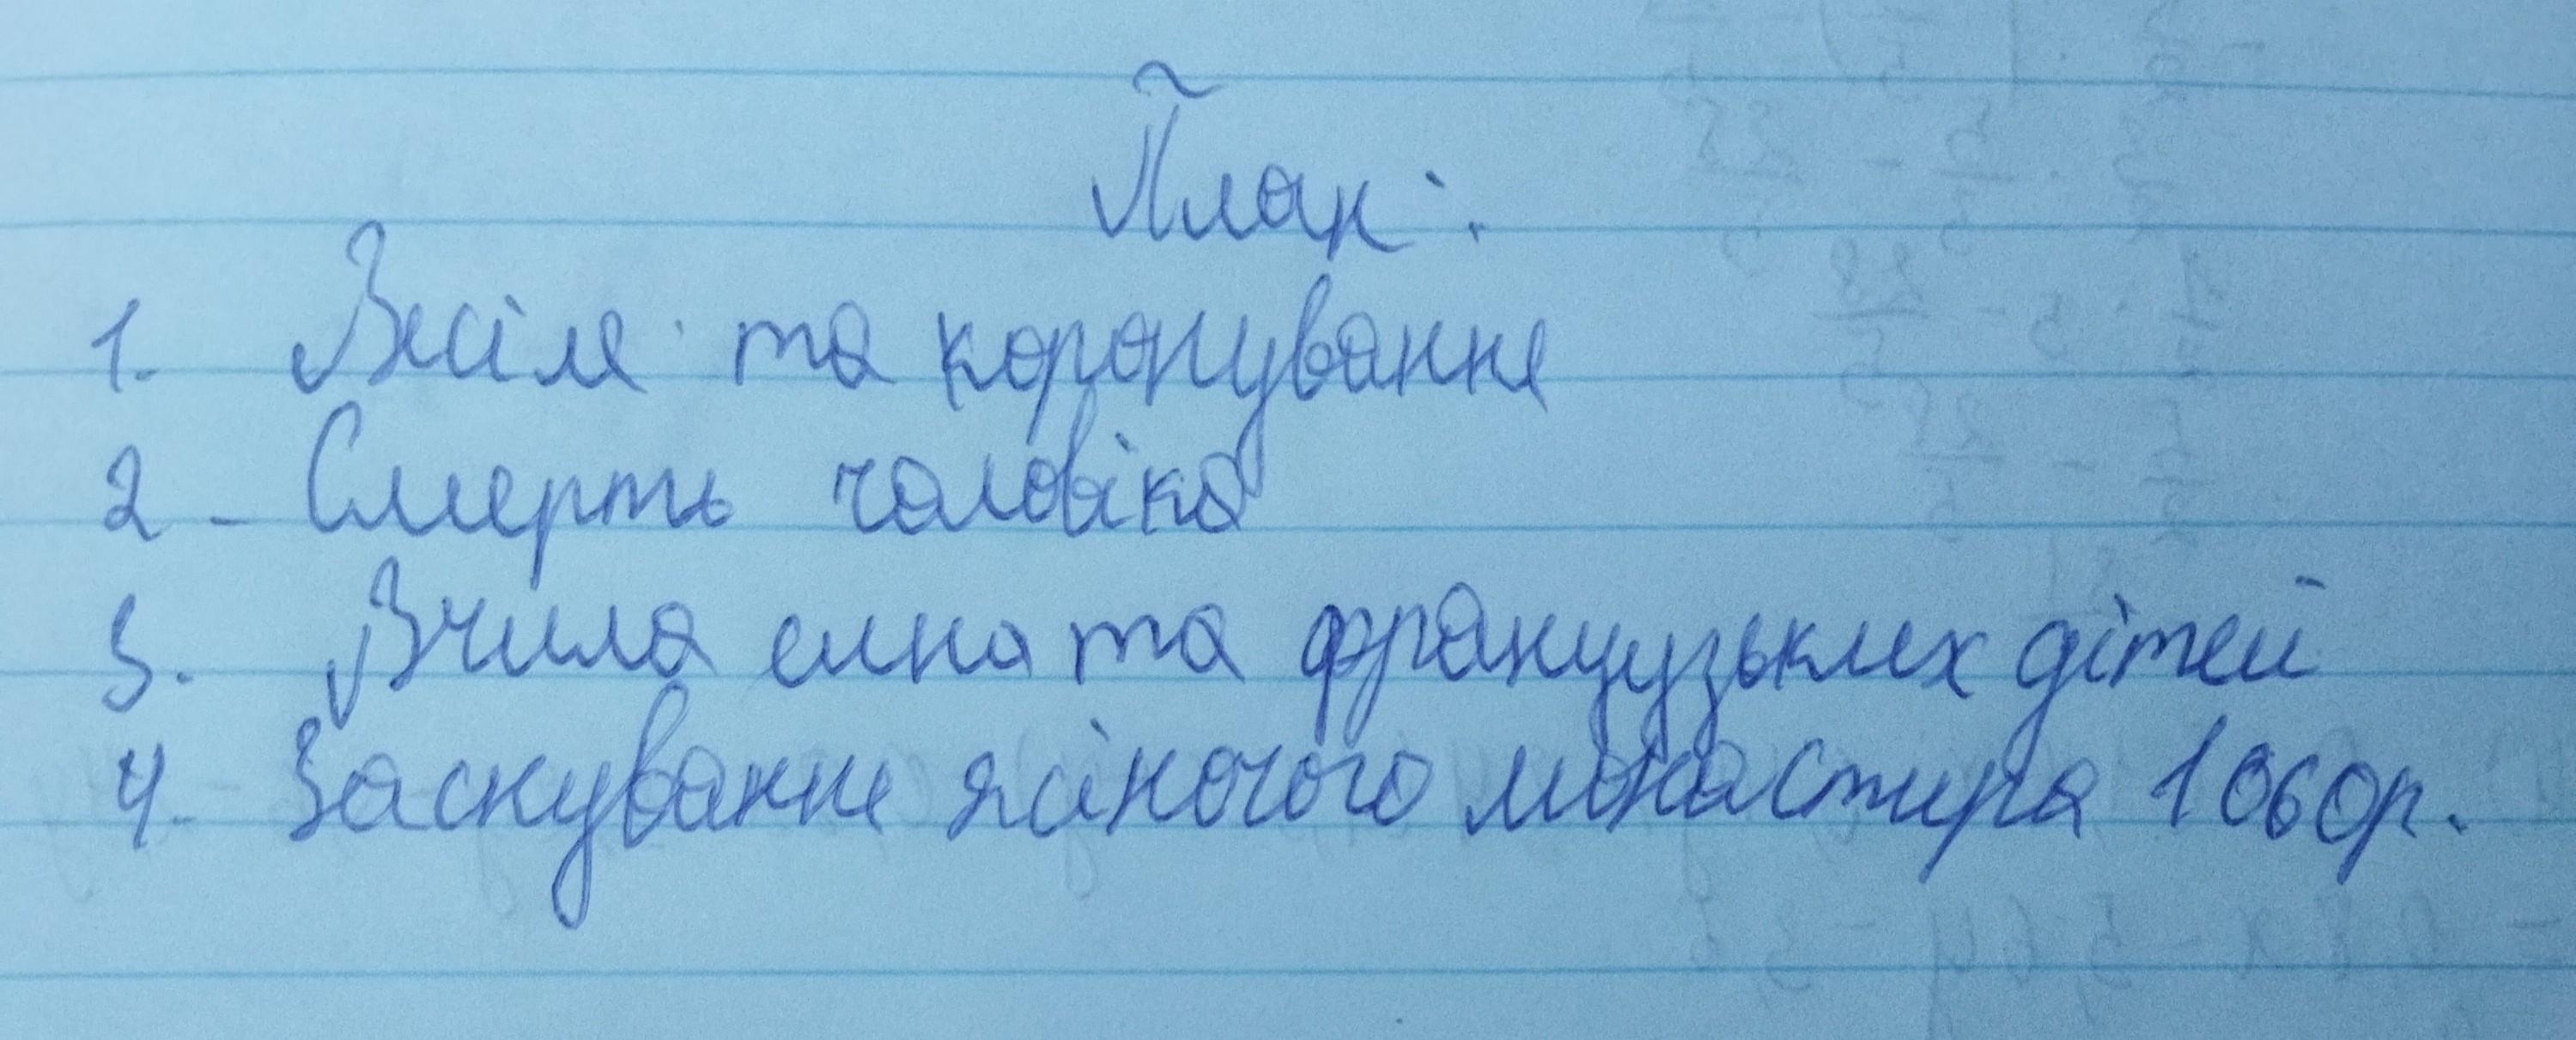 План:
1. Весіля та коронування
2. Смерть чоловіка
3. Вчила сина та французьких дітей
4. Заснування жіночого монастиря 1060р.